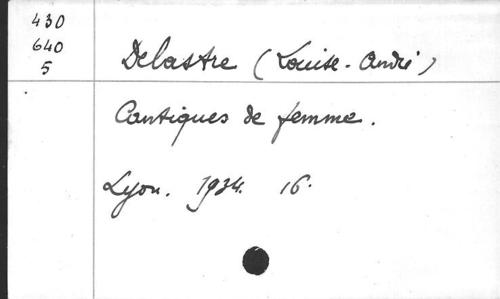 430
640
5
Delastre (Louise-André)
Cantiques de femme.
Lyon. 1934. 16.